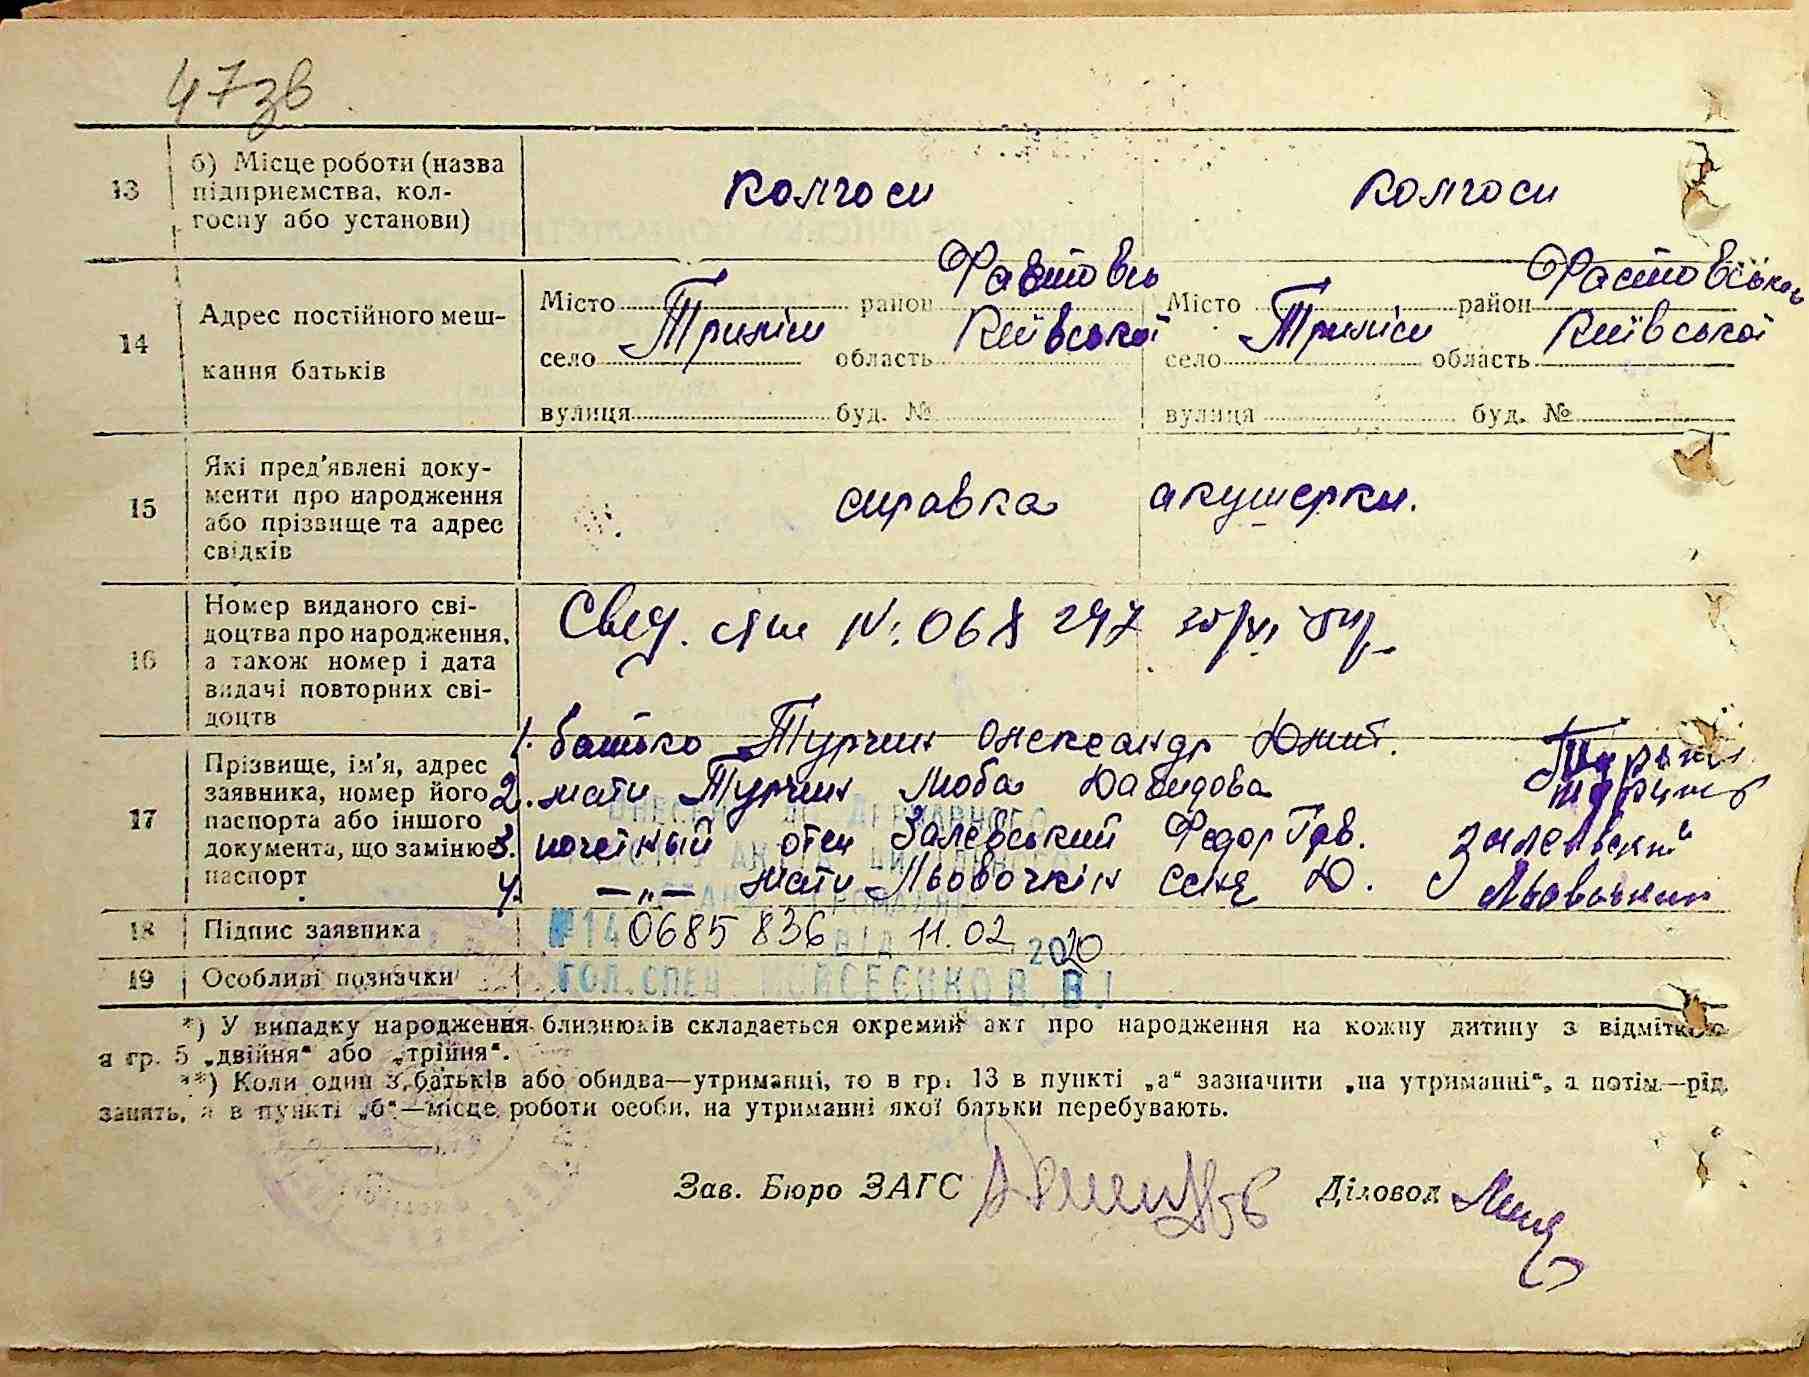 47зв
13
б) Місце роботи (назва
підприємства, кол-
госпу або установи)
колгосп
колгосп
14
Адрес постійного меш-
кання батьків
Місто район Фастовсь
село Триліси область Київської
вулиця буд. №
Місто район Фастовської
село Триліси область Київської
вулиця буд. №
15
Які пред'явлені доку-
менти про народження
або прізвище та адрес
свідків
справка акушерки.
16
Номер виданого сві-
доцтва про народження,
а також номер і дата
видачі повторних сві-
доцтв
Свид. № 068 297
17
Прізвище, ім'я, адрес
заявника, номер його
паспорта або іншого
документа, що замінює
паспорт
1. батько Турчин Олександр
2. мати Турчин Люба Давидова
3. почетный отец Залевський Федор Гав. Залевский
4. —„— мати Льовочкін Д.
ВНЕСЕНО ДО ДЕРЖАВНОГО
РЕЄСТРУ АКТІВ ЦИВІЛЬНОГО
СТАНУ ГРОМАДЯН
18
Підпис заявника
№14 0685 836 ВІД 11.02 2020
19
Особливі позначки
ГОЛ.СПЕЦ МОЙСЕЄНКО В.В.
*) У випадку народження близнюків складається окремий акт про народження на кожну дитину з відміткою
в гр. 5 „двійня“ або „трійня“.
**) Коли один з батьків або обидва—утриманці, то в гр. 13 в пункті „а“ зазначити „на утриманні“, а потім—рід
занять, а в пункті „б“—місце роботи особи, на утриманні якої батьки перебувають.
Зав. Бюро ЗАГС
Діловод